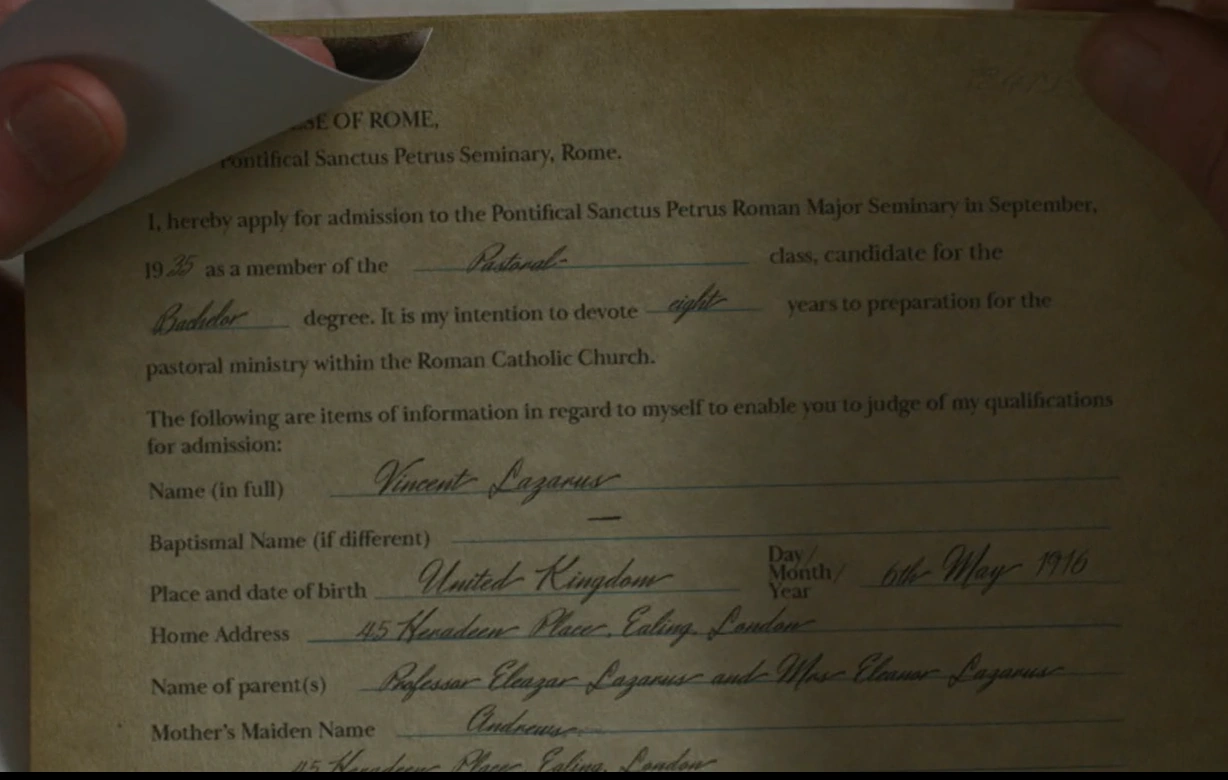 SE OF ROME,
Pontifical Sanctus Petrus Seminary, Rome.
I, hereby apply for admission to the Pontifical Sanctus Petrus Roman Major Seminary in September,
1935 as a member of the Pastoral- class, candidate for the
Bachelor degree. It is my intention to devote eight years to preparation for the
pastoral ministry within the Roman Catholic Church.
The following are items of information in regard to myself to enable you to judge of my qualifications
for admission:
Name (in full) Vincent Lazarus
Baptismal Name (if different) —
Place and date of birth United Kingdom Day/ Month/ Year 6th May 1916
Home Address 45 Place, Ealing, London
Name of parent(s) Professor Eleazar Lazarus and Mrs Eleanor Lazarus
Mother's Maiden Name Andrews
45 Place, Ealing, London